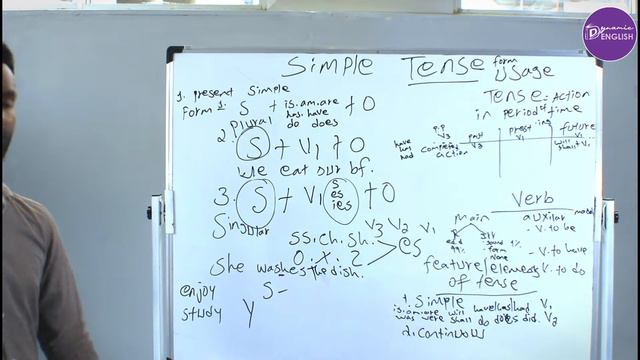 Dynamic
ENGLISH
Simple Tense form
usage
1. present simple
Form 1. S + is.am.are + O
has. have
do does
2. plural
S + V1 + O
we eat our bf.
3. S + V1 s + O
es
ies
Singular
ss. ch. sh.
O. x. z > es
she washes the dish.
enjoy S -
study y
TENSE: Action
in period of time
p.p past present ing future
V3 V2 V1 V1
have completed will
has action shall V1
had
Verb
main auxiliar modal
- V. to be
- V. to have
V. to do
V3 V2 V1
feature/elements
of tense
1. Simple
is.am.are will have/has/had V1
was were shall do does did. V2
2. continuous